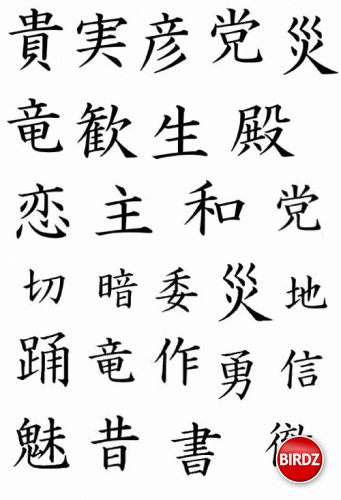 貴実彦党災
竜歓生殿
恋主和党
切暗委災地
踊竜作勇信
魅昔書
BIRDZ